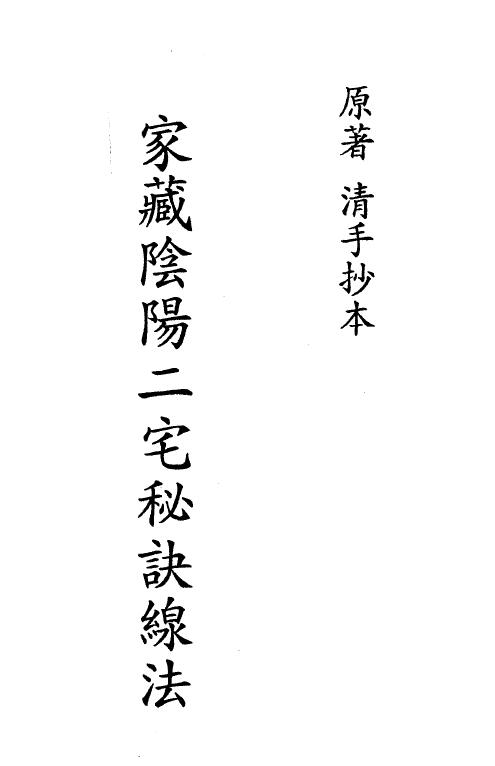 原著 清手抄本
家藏陰陽二宅秘訣線法